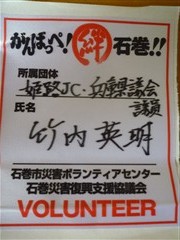 がんばっぺ!絆石巻!!
所属団体
姫路JC・兵庫県議会
議員
氏名
竹内英明
石巻市災害ボランティアセンター
石巻災害復興支援協議会
VOLUNTEER